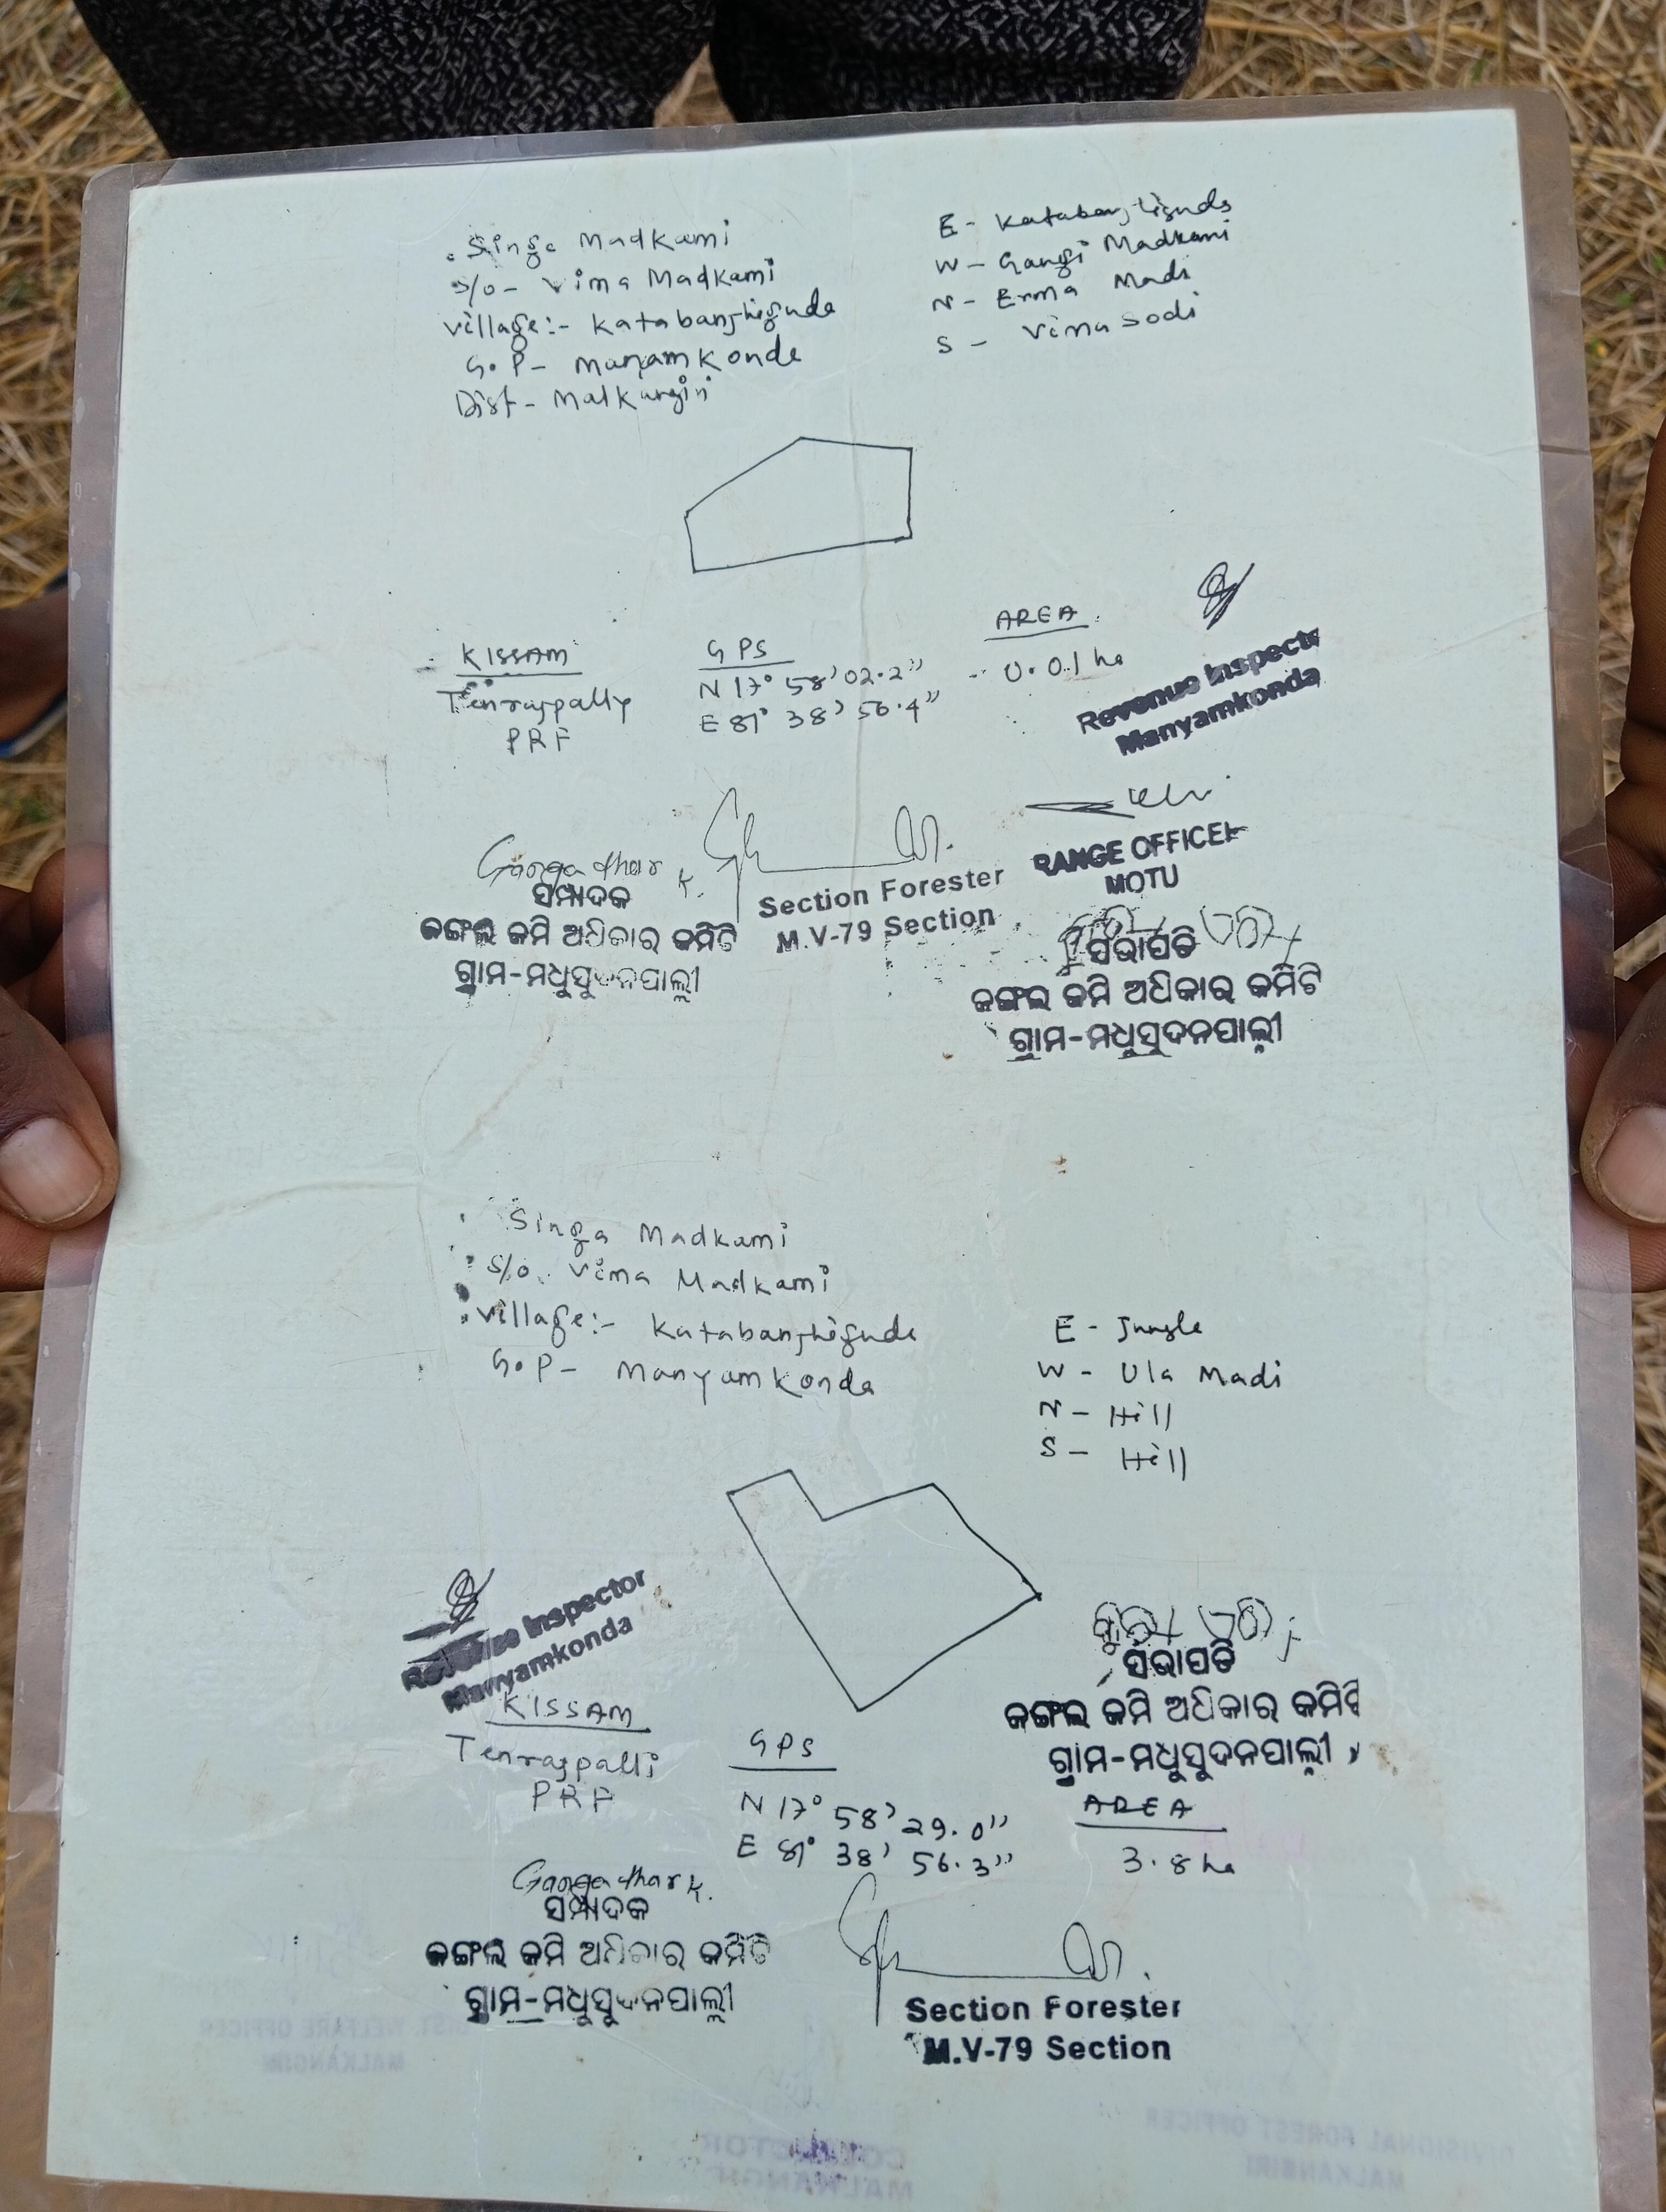 Singa Madkami
S/o - Vima Madkami
Village:- Katabanjhiguda
G.P - Manyamkonda
Dist - Malkangiri
E - Katabanjhiguda
W - Gangi Madkami
N - Erma Madi
S - Vima Sodi
KISSAM
Tenrajpally
PRF
GPS
N 17° 58' 02.2"
E 81° 38' 56.4"
AREA
0.01 ha
Revenue Inspector
Manyamkonda
RANGE OFFICER
MOTU
Gangadhar K.
ସମ୍ପାଦକ
ଜଙ୍ଗଲ ଜମି ଅଧିକାର କମିଟି
ଗ୍ରାମ-ମଧୁସୁଦନପାଲ୍ଲୀ
Section Forester
M.V-79 Section
ସଭାପତି
ଜଙ୍ଗଲ ଜମି ଅଧିକାର କମିଟି
ଗ୍ରାମ-ମଧୁସୁଦନପାଲ୍ଲୀ
Singa Madkami
S/o. Vima Madkami
Village:- Katabanjhiguda
G.P - Manyamkonda
E - Jungle
W - Ula Madi
N - Hill
S - Hill
Revenue Inspector
Manyamkonda
KISSAM
Tenrajpalli
PRF
GPS
N 17° 58' 29.0"
E 81° 38' 56.3"
ସଭାପତି
ଜଙ୍ଗଲ ଜମି ଅଧିକାର କମିଟି
ଗ୍ରାମ-ମଧୁସୁଦନପାଲ୍ଲୀ
AREA
3.8 ha
Gangadhar K.
ସମ୍ପାଦକ
ଜଙ୍ଗଲ ଜମି ଅଧିକାର କମିଟି
ଗ୍ରାମ-ମଧୁସୁଦନପାଲ୍ଲୀ
Section Forester
M.V-79 Section